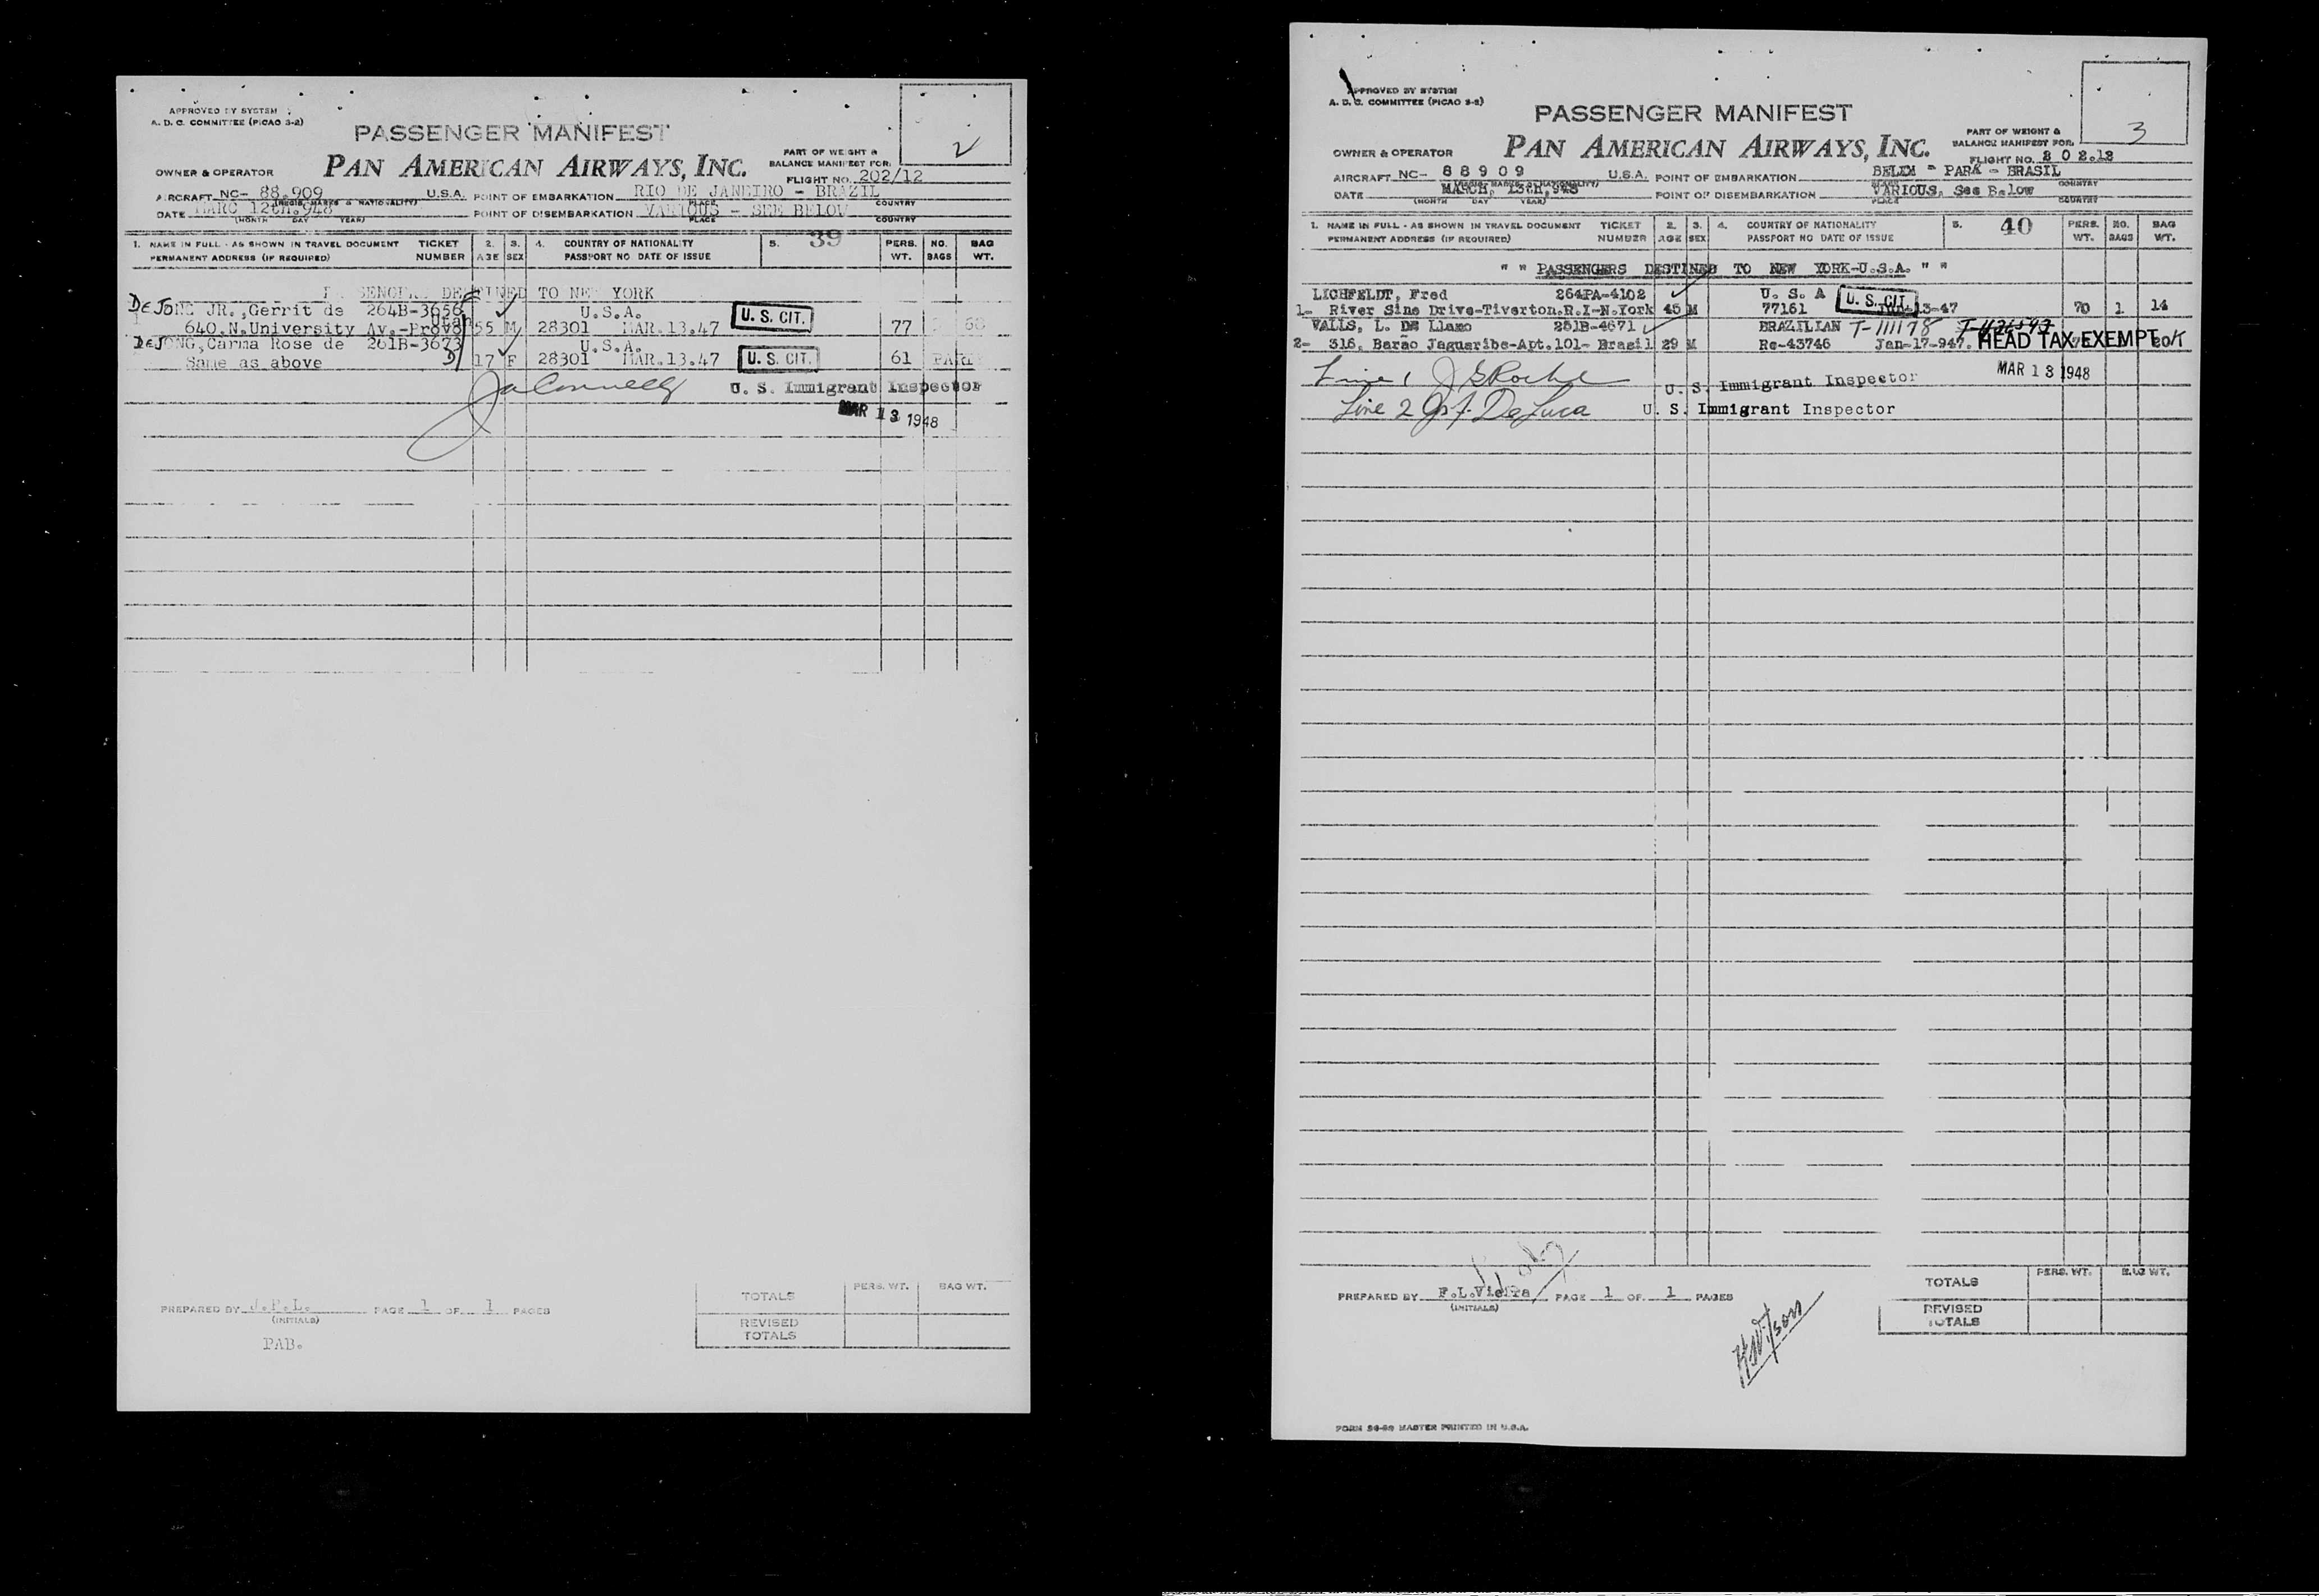 APPROVED BY SYSTEM
A. D. C. COMMITTEE (PICAO 3-2)
2
PASSENGER MANIFEST
PAN AMERICAN AIRWAYS, INC.
PART OF WEIGHT &
BALANCE MANIFEST FOR:
OWNER & OPERATOR
FLIGHT NO. 202/12
AIRCRAFT NC- 88.909 U.S.A. POINT OF EMBARKATION RIO DE JANEIRO - BRAZIL
(REGIS. MARKS & NATIONALITY) PLACE COUNTRY
DATE MARC 12th.948 POINT OF DISEMBARKATION VARIOUS - SEE BELOW
(MONTH DAY YEAR) PLACE COUNTRY
39
1. NAME IN FULL - AS SHOWN IN TRAVEL DOCUMENT TICKET 2. 3. 4. COUNTRY OF NATIONALITY 5. PERS. NO. BAG
PERMANENT ADDRESS (IF REQUIRED) NUMBER AGE SEX PASSPORT NO DATE OF ISSUE WT. BAGS WT.
PASSENGERS DESTINED TO NEW YORK
DeJONG JR.,Gerrit de 264B-3656 U.S.A. U. S. CIT.
1 640.N.University Av.-Provo Utah 55 M 28301 MAR.13.47 77 68
DeJONG,Carma Rose de 261B-3673 U.S.A.
Same as above D 17 F 28301 MAR.13.47 U. S. CIT. 61
U. S. Immigrant Inspector
MAR 13 1948
PREPARED BY J.P.L. PAGE 1 OF 1 PAGES
(INITIALS)
PAB.
PERS. WT. BAG WT.
TOTALS
REVISED
TOTALS
APPROVED BY SYSTEM
A. D. C. COMMITTEE (PICAO 3-2)
3
PASSENGER MANIFEST
PAN AMERICAN AIRWAYS, INC.
PART OF WEIGHT &
BALANCE MANIFEST FOR:
OWNER & OPERATOR
FLIGHT NO. 202.12
AIRCRAFT NC- 88909 U.S.A. POINT OF EMBARKATION BELEM - PARA - BRASIL
(REGIS. MARKS & NATIONALITY) PLACE COUNTRY
DATE MARCH, 13th,948 POINT OF DISEMBARKATION VARIOUS, See Below
(MONTH DAY YEAR) PLACE COUNTRY
40
1. NAME IN FULL - AS SHOWN IN TRAVEL DOCUMENT TICKET 2. 3. 4. COUNTRY OF NATIONALITY 5. PERS. NO. BAG
PERMANENT ADDRESS (IF REQUIRED) NUMBER AGE SEX PASSPORT NO DATE OF ISSUE WT. BAGS WT.
" " PASSENGERS DESTINED TO NEW YORK-U.S.A. " "
LICHFELDT, Fred 264PA-4102 U. S. A U. S. CIT.
1- River Sine Drive-Tiverton.R.I-N.York 45 M 77161 13-47 70 1 14
VALLS, L. DE Llano 251B-4671 BRAZILIAN T-111178
2- 316, Barão Jaguaribe-Apt.101- Brasil 29 M Re-43746 Jan-17-947. HEAD TAX EXEMPT
Line 1 U. S. Immigrant Inspector MAR 13 1948
Line 2 DeLuca U. S. Immigrant Inspector
PREPARED BY F.L.Vieira PAGE 1 OF 1 PAGES
(INITIALS)
PERS. WT. BAG WT.
TOTALS
REVISED
TOTALS
FORM 36-62 MASTER PRINTED IN U.S.A.